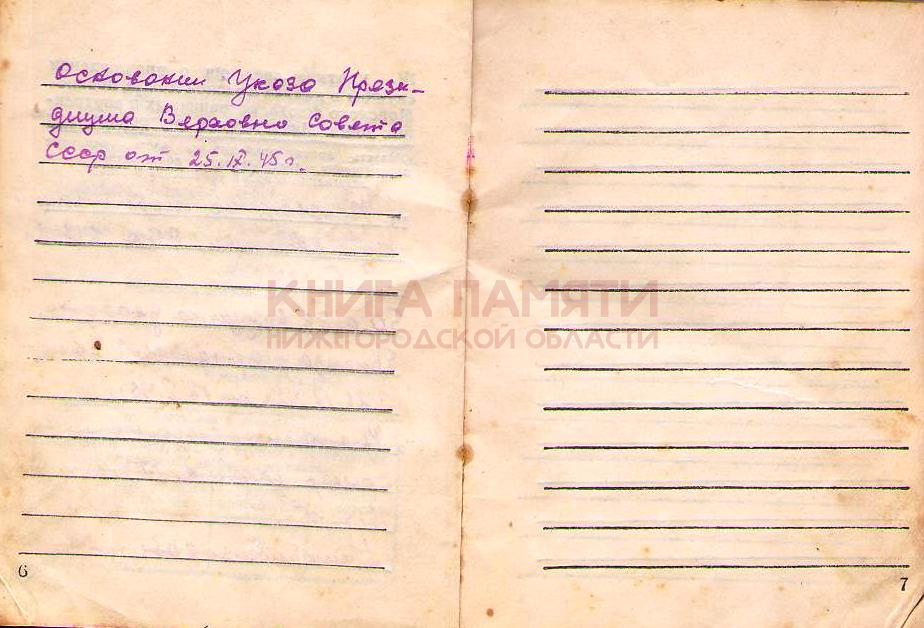 основании Указа Прези-
диума Верховно Совета
СССР от 25.IX.45 г.
КНИГА ПАМЯТИ
НИЖЕГОРОДСКОЙ ОБЛАСТИ
6
7